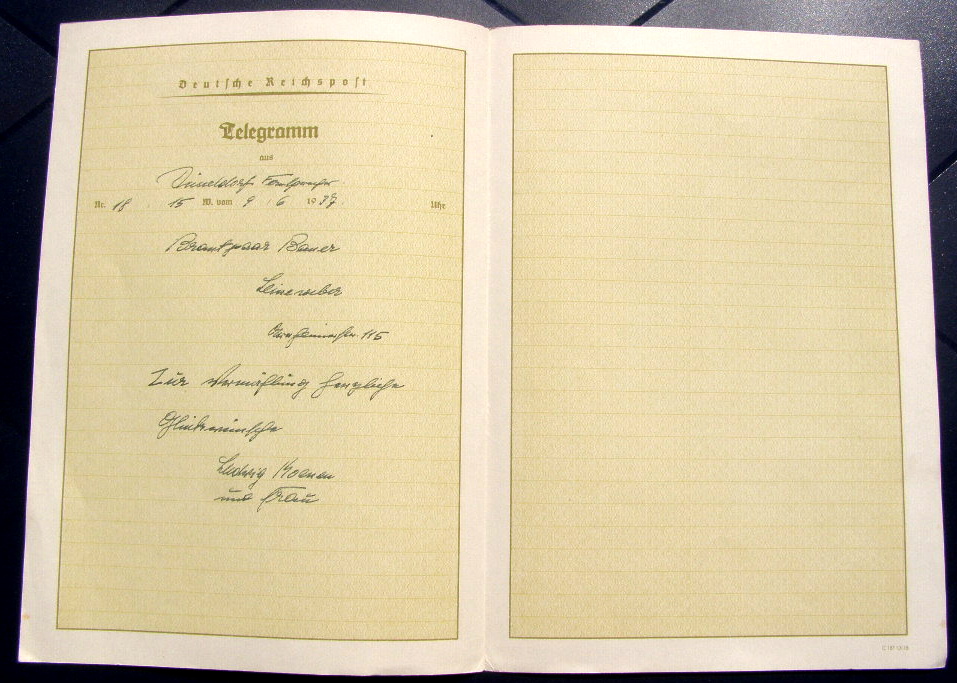 Deutsche Reichspost
Telegramm
aus
Düsseldorf Fernsprecher
Nr. 18 15 W. vom 9 6 1937 Uhr
Brautpaar Bauer
Leineweber
115
Zur Vermählung herzliche
Glückwünsche
Ludwig Koenen
und Frau